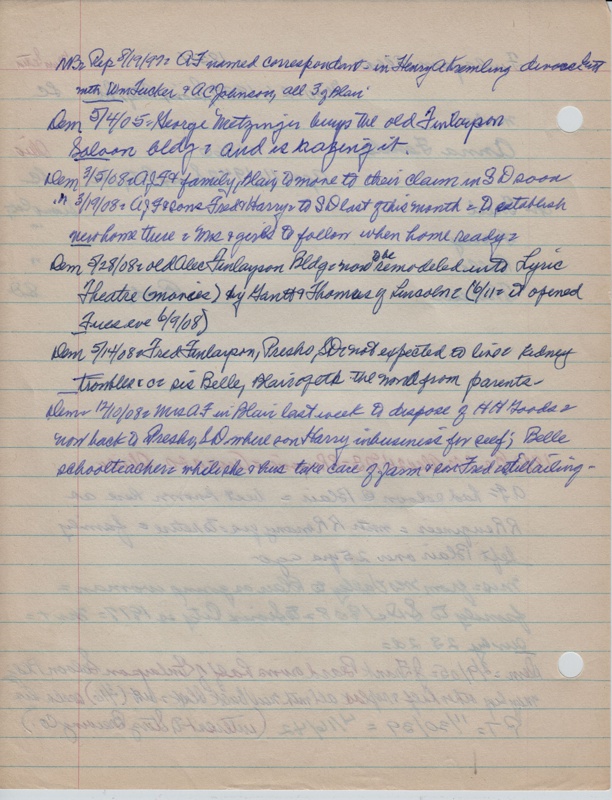 Rep 8/19/97= AF named correspondent in Henry A Kremling divorce suit
with Wm Tucker & AC Johnson, all of Blair
Dem 5/4/05= George Metzinger buys the old Finlayson
Saloon bldg & and is razing it.
Dem 3/5/08= AJF & family, Blair to move to their claim in SD soon
" 3/19/08= AJF & sons Fred & Harry= to SD last of this month= to establish
new home there= Mrs & girls to follow when home ready=
Dem 5/28/08= old Alec Finlayson Bldg= now to be remodeled into Lyric
Theatre (movies) by Gantt & Thomas of Lincoln= (6/11= it opened
Tues eve 6/9/08)
Dem 5/14/08= Fred Finlayson, Presho, SD= not expected to live= kidney
trouble= sis Belle, Blair the word from parents-
Dem= 12/10/08= Mrs AF in Blair last week to dispose of HH Goods=
now back to Presho, SD where son Harry in business for self; Belle
schoolteacher= while she & hus take care of farm & son Fred still ailing-